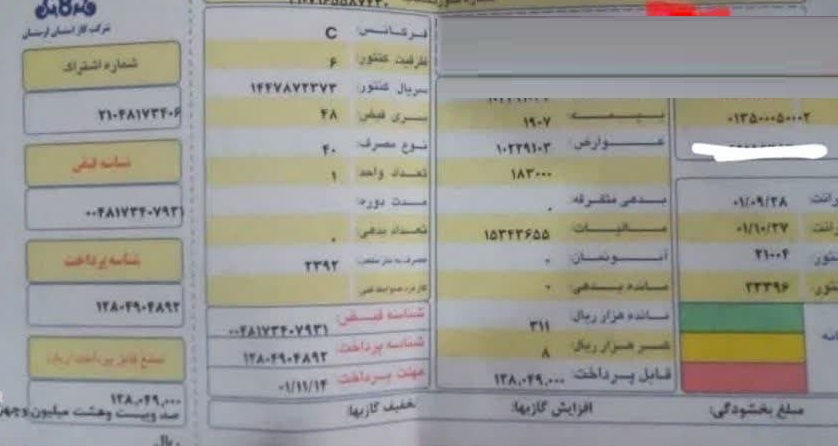 شرکت گاز استان لرستان
شماره اشتراک
۲۱۰۴۸۱۷۳۴۰۶
شناسه قبض
۰۰۴۸۱۷۳۴۰۷۹۳۱
شناسه پرداخت
۱۲۸۰۴۹۰۴۸۹۲
مبلغ قابل پرداخت (ریال)
۱۲۸,۰۴۹,۰۰۰
صد و بیست و هشت میلیون و چهل
ریال
فرکانس: C
ظرفیت کنتور: ۶
سریال کنتور: ۱۴۴۷۸۷۲۳۷۳
سری قبض: ۴۸
نوع مصرف: ۴۰
تعداد واحد: ۱
مدت دوره:
تعداد بدهی: ۰
۲۳۹۲
شناسه قبض: ۰۰۴۸۱۷۳۴۰۷۹۳۱
شناسه پرداخت: ۱۲۸۰۴۹۰۴۸۹۲
مهلت پرداخت: ۰۱/۱۱/۱۴
تخفیف گازبها:
بیمه: ۱۹۰۷
عوارض: ۱۰۲۲۹۱۰۳
۱۸۳۰۰۰
بدهی متفرقه: ۰
مالیات: ۱۵۳۴۳۶۵۵
آبونمان: ۰
مانده بدهی: ۰
مانده هزار ریال: ۳۱۱
کسر هزار ریال: ۸
قابل پرداخت: ۱۲۸,۰۴۹,۰۰۰
افزایش گازبها:
۰۱۳۵۰۰۰۵۰۰۰۲
۰۱/۰۹/۲۸
۰۱/۱۰/۲۷
۲۱۰۰۴
۲۳۳۹۶
مبلغ بخشودگی: